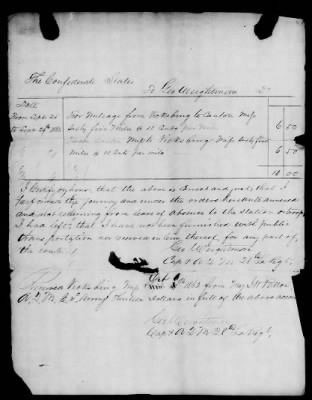 The Confederate States
To Geo Weightman Dr
Date
From Sept 25 For Mileage from Vicksburg to Canton Miss
Sixty five Miles @ 10 Cents per mile 6 50
From Canton Miss to Vicksburg Miss Sixty five
Miles @ 10 Cents per mile 6 50
13 00
I Certify on honor, that the above is Correct and just; that I
performed the journey and under the orders
and was returning from leave of absence to the Station or troops
I had left; that I have not been furnished with public
transportation or money in lieu thereof, for any part of
the route
Geo Weightman
Capt & A Q M 28th La Regt.
Received Vicksburg Miss Oct 1862 from Maj
A Q M C. S. Army Thirteen Dollars in full of the above account
Geo Weightman
Capt & A Q M 28th La Regt.